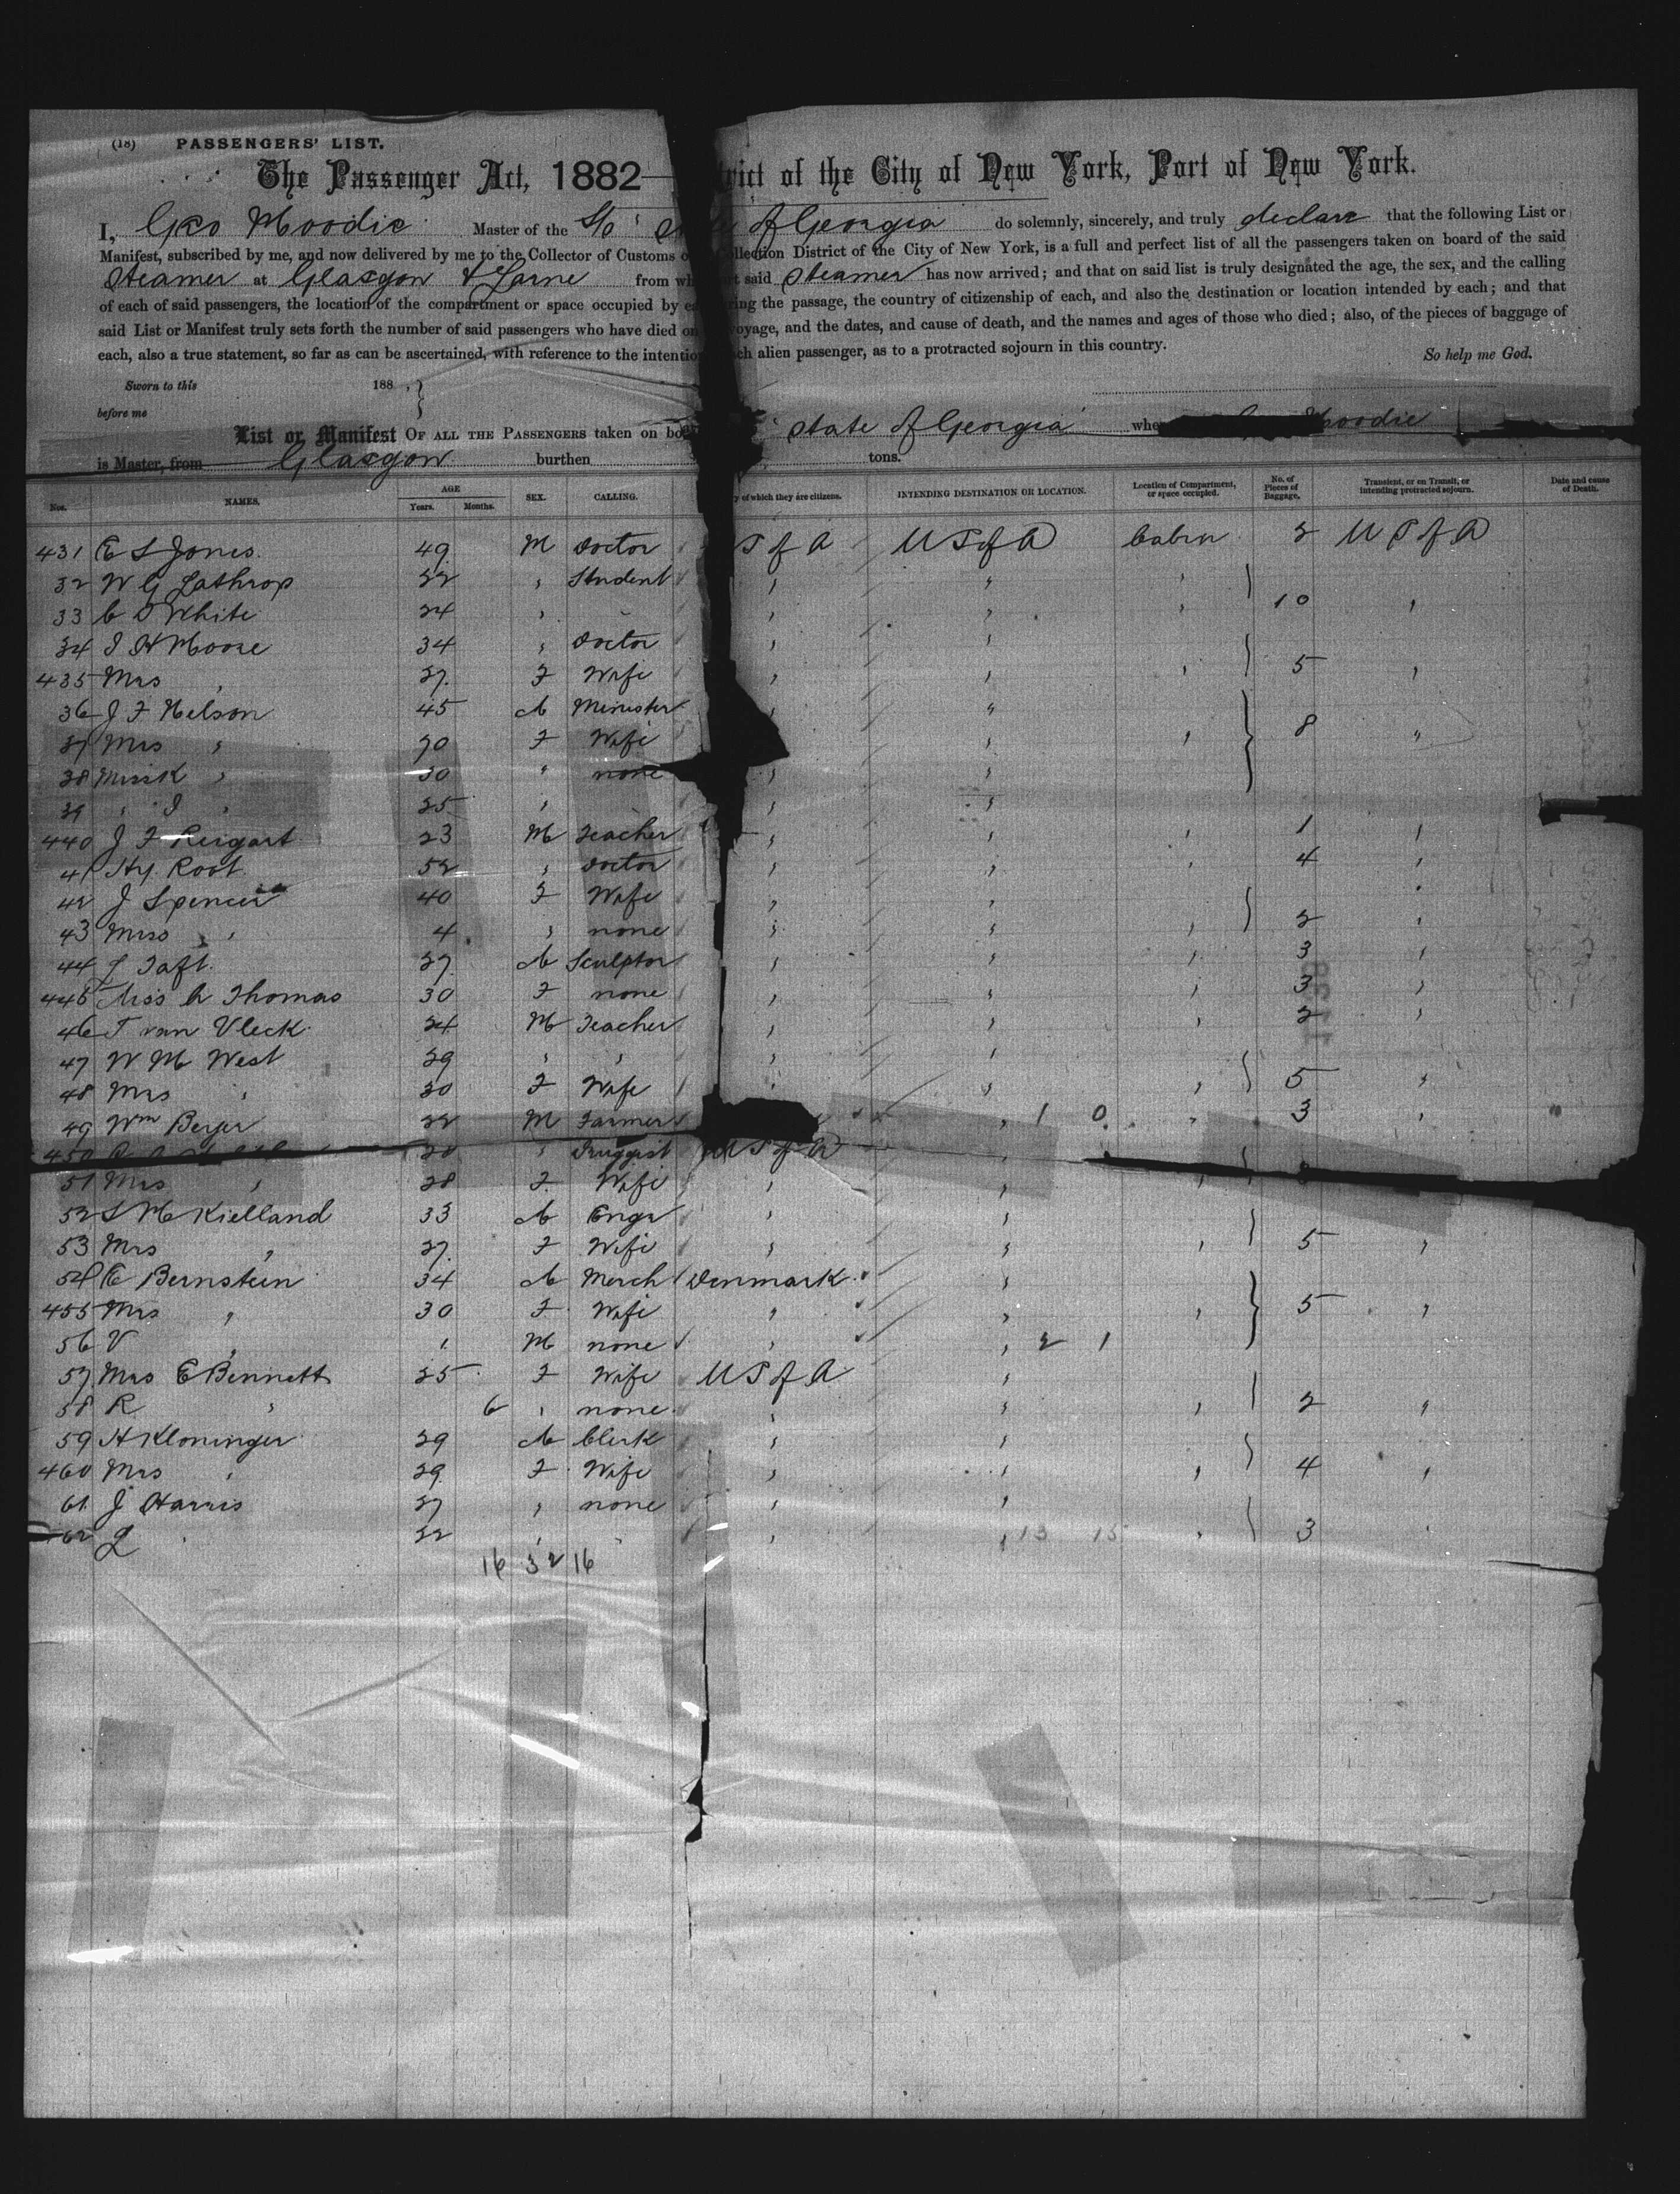 (18) PASSENGERS' LIST.
The Passenger Act, 1882 trict of the City of New York, Port of New York.
I, Geo Moodie Master of the of Georgia do solemnly, sincerely, and truly declare that the following List or
Manifest, subscribed by me, and now delivered by me to the Collector of Customs o Collection District of the City of New York, is a full and perfect list of all the passengers taken on board of the said
Steamer at Glasgow & Larne from wh said Steamer has now arrived; and that on said list is truly designated the age, the sex, and the calling
of each of said passengers, the location of the compartment or space occupied by ea ring the passage, the country of citizenship of each, and also the destination or location intended by each; and that
said List or Manifest truly sets forth the number of said passengers who have died on voyage, and the dates, and cause of death, and the names and ages of those who died; also, of the pieces of baggage of
each, also a true statement, so far as can be ascertained, with reference to the intentio ch alien passenger, as to a protracted sojourn in this country.
So help me God.
Sworn to this 188 ,
before me
List or Manifest OF ALL THE PASSENGERS taken on bo State of Georgia whe Moodie
is Master, from Glasgow burthen tons.
Nos. NAMES. AGE Years. Months. SEX. CALLING. y of which they are citizens. INTENDING DESTINATION OR LOCATION. Location of Compartment, or space occupied. No. of Pieces of Baggage. Transient, or on Transit, or intending protracted sojourn. Date and cause of Death.
431 E S Jones 49 M Doctor S of A U S of A Cabin 2 U S of A
32 W G Lathrop 22 " Student " " "
33 C D White 24 " " " " " 10 "
34 J H Moore 34 " Doctor " "
435 Mrs " 27 F Wife " " " 5 "
36 J F Nelson 45 M Minister " "
37 Mrs " 70 F Wife " " " 8 "
38 Miss K " 30 " none " "
39 " J " 25 " " "
440 J F Reigart 23 M Teacher " " " 1 "
41 Hy. Root 52 " Doctor " " " 4 "
42 J Spencer 40 F Wife " " "
43 Miss " 4 " none " " " 2 "
44 L Taft 27 M Sculptor " " " 3 "
445 Miss A Thomas 30 F none " " " 3 "
46 T van Vleck 24 M Teacher " " " 2 "
47 W M West 29 " " " "
48 Mrs " 30 F Wife " " " 5 "
49 Wm Berger 22 M Farmer " 1 0 " 3 "
450 " Druggist U S of A "
51 Mrs " 28 F Wife " " "
52 S M Kielland 33 M Engr " "
53 Mrs " 27 F Wife " " " 5 "
54 E Bernstein 34 M Merch Denmark "
455 Mrs " 30 F Wife " " " 5 "
56 V " 1 M none " " 2 1
57 Mrs E Bennett 25 F Wife U S of A "
58 R " 6 " none " " " 2 "
59 H Kloninger 29 M Clerk " "
460 Mrs " 29 F Wife " " " 4 "
61 J Harris 27 " none " "
62 L " 22 " " " " 13 15 " 3 "
16 32 16